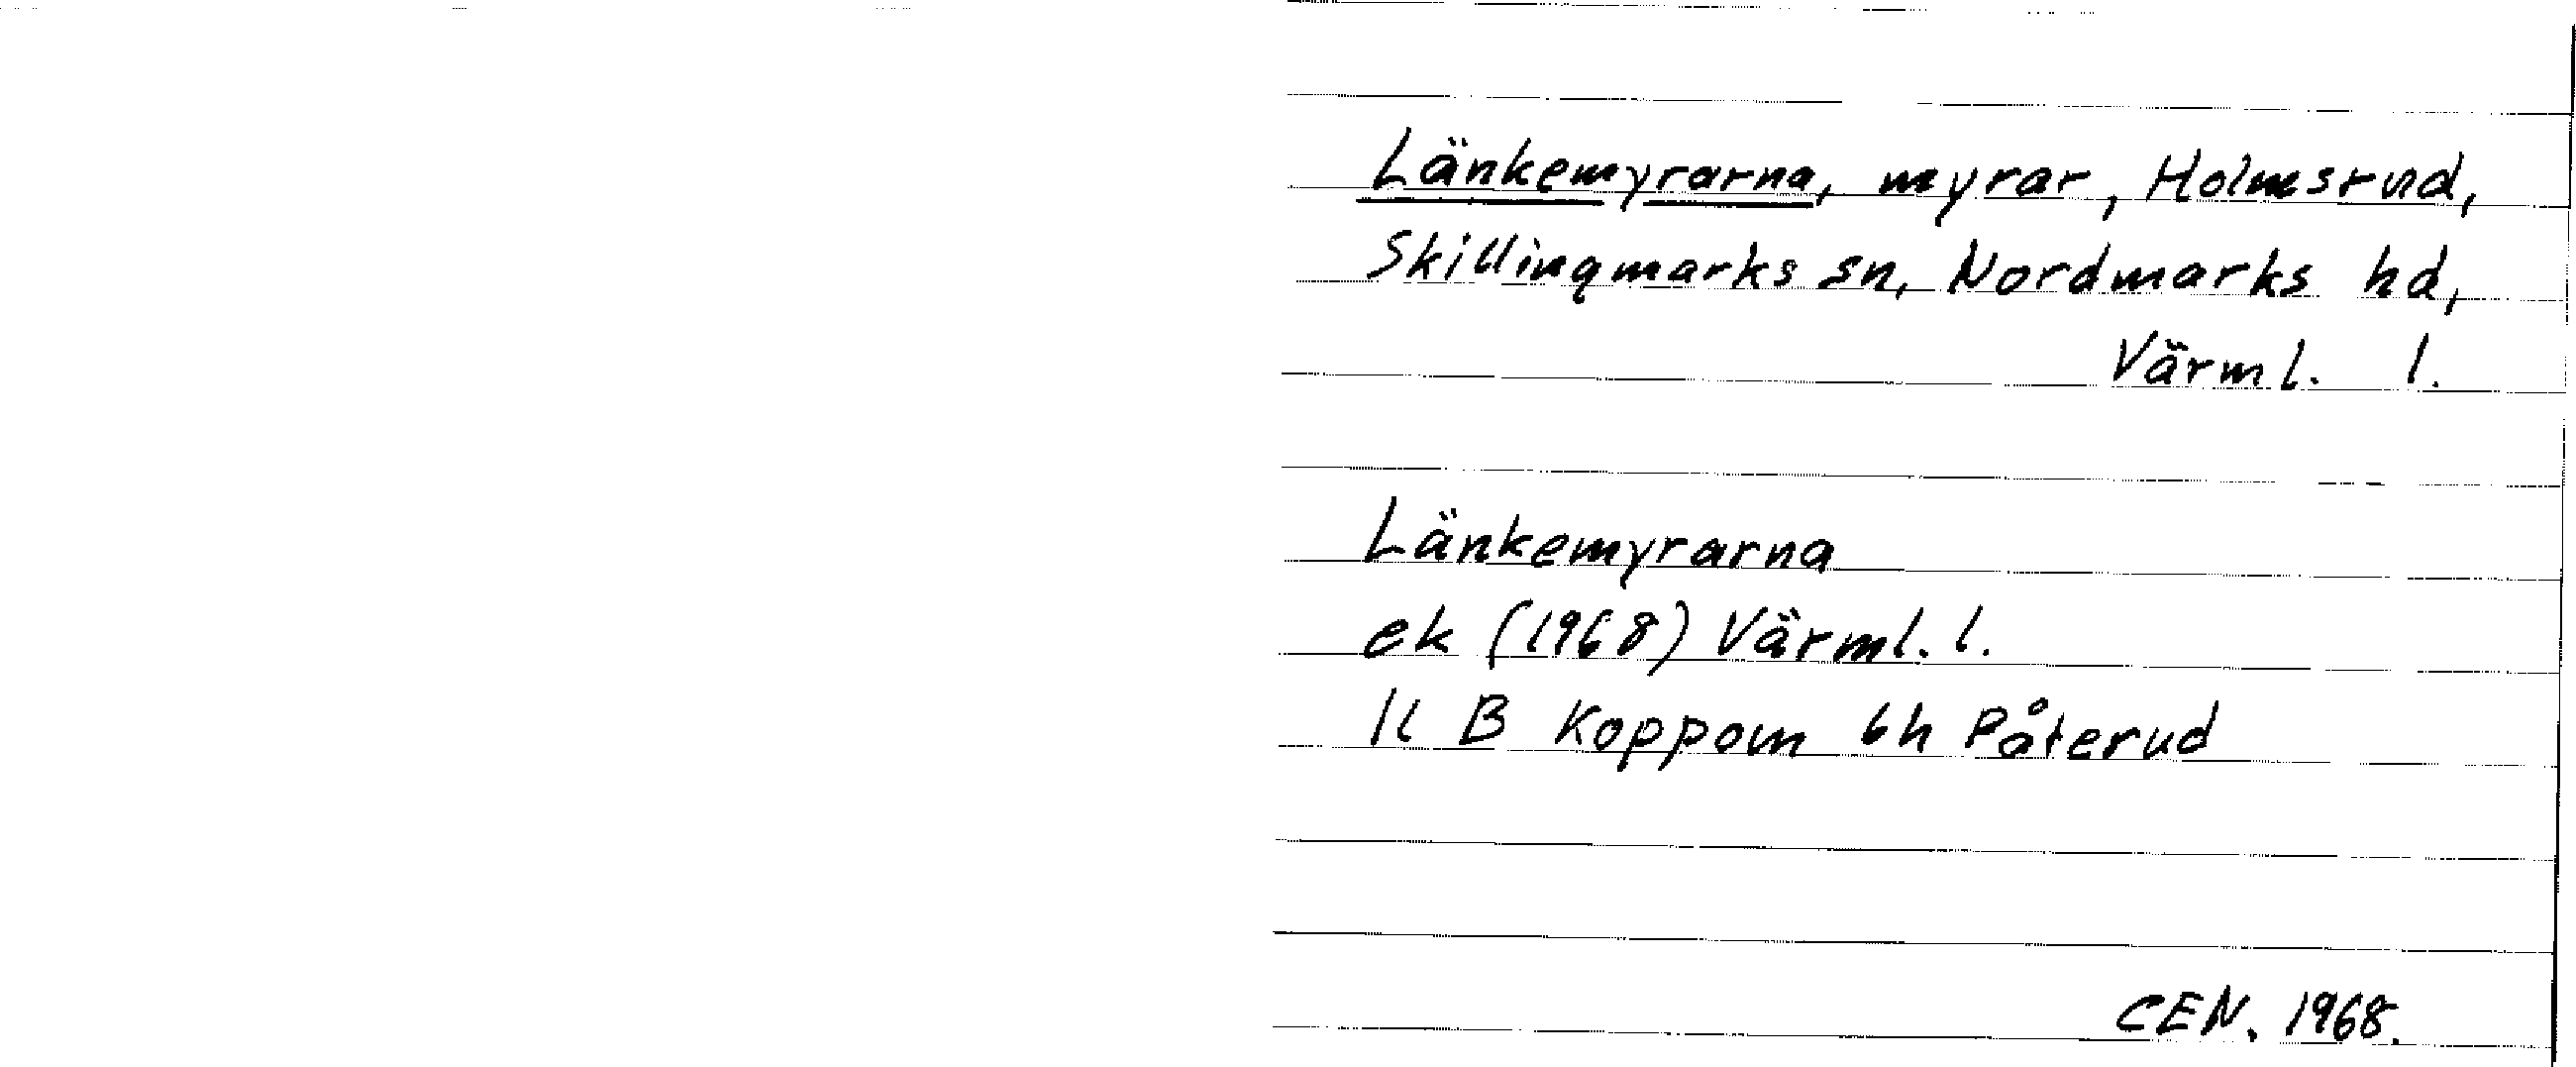 Länkemyrarna, myrar, Holmsrud,
Skillingmarks sn, Nordmarks hd,
Värml. l.
Länkemyrarna
ek (1968) Värml. l.
11 B Koppom 6h Påterud
CEN. 1968.